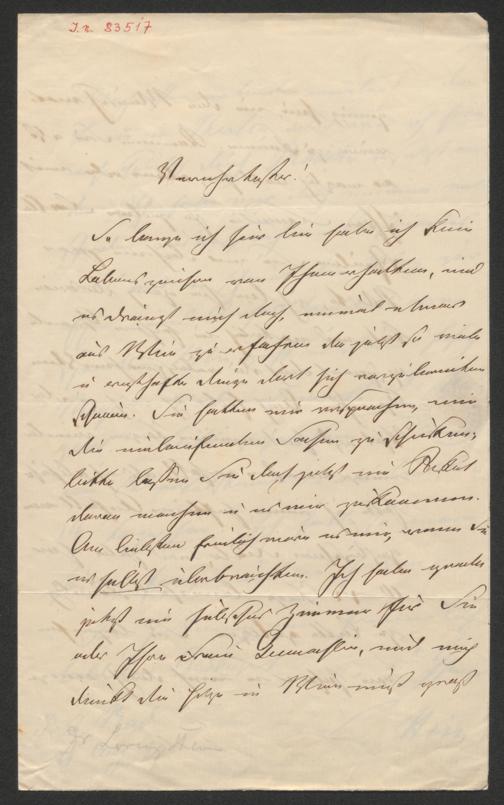 I.N. 83517
Verehrtester!
So lange ich hier bin habe ich kein
Lebenszeichen von Ihnen erhalten, und
es drängt mich doch, einmal etwas
aus Wien zu erfahren da jetzt so viele
u ernsthafte Dinge dort sich vorzubereiten
scheinen. Sie hatten mir versprochen, mir
die einlaufenden Sachen zu schicken;
bitte lassen Sie doch jetzt ein Packet
daraus machen u es mir zukommen.
Am liebsten freilich wäre es mir, wenn Sie
es selbst überbrächten. Ich habe gerade
jetzt ein hübsches Zimmer für Sie
oder Ihre Frau Gemahlin, und mich
dünkt die Hitze in Wien muß groß